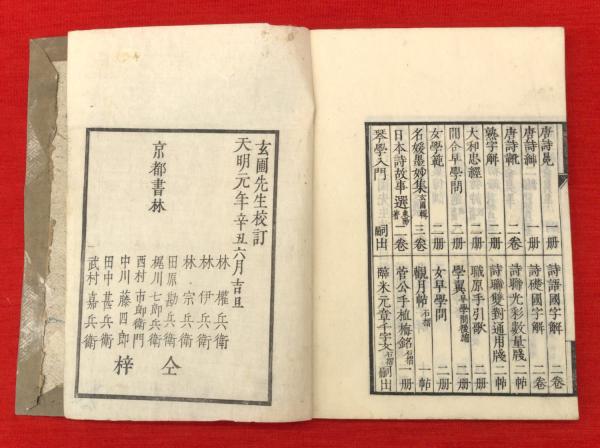 唐詩礎 一冊
唐詩韻 一冊
唐詩 二卷
熟字解 一冊
大和忠經 二冊
間合早學問 二冊
女學範 二冊
名媛墨妙集 玄圃輯 三卷
日本詩故事選 著 二卷
琴學入門 嗣出
詩語國字解 二卷
詩礎國字解 二卷
詩聯光彩數量牋 二帖
詩聯雙對通用牋 二帖
職原手引歌 二冊
學翼 早學問後編 二冊
女早學問 二冊
觀月帖 石摺 一帖
菅公手植梅銘 石摺 一冊
醉米元章千字文 石摺 嗣出
玄圃先生校訂
天明元年辛丑六月吉旦
京都書林
林 權兵衛
林 伊兵衛
林 宗兵衛
田原勘兵衛
梶川七郎兵衛
西村市郎衛門
中川藤四郎
田中甚兵衛
武村嘉兵衛
仝梓